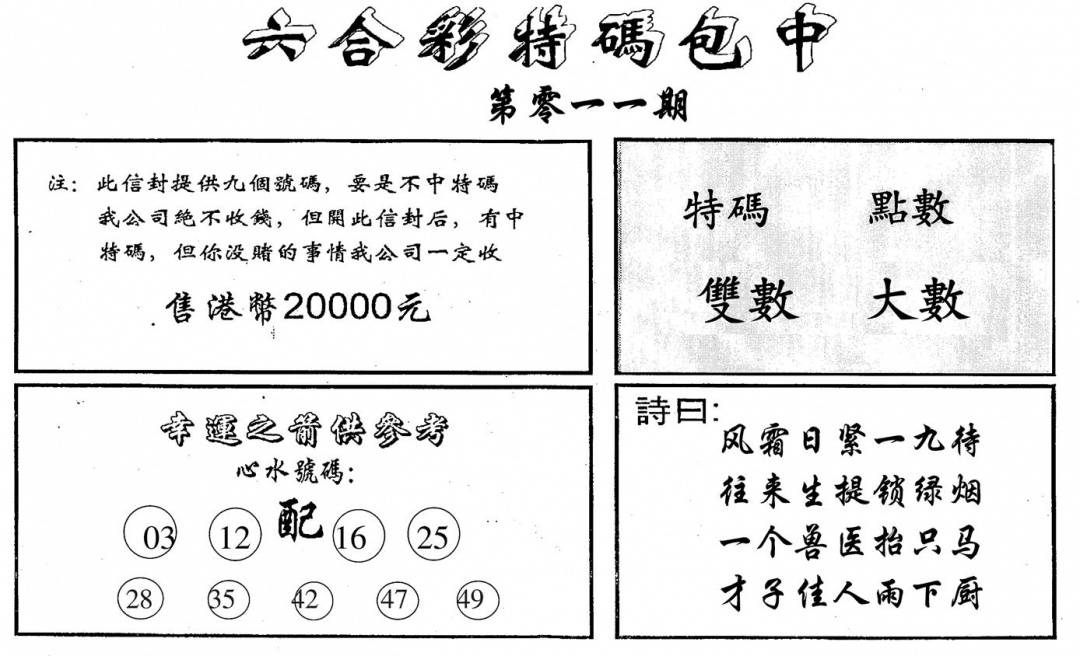 六合彩特碼包中
第零一一期
注：此信封提供九個號碼，要是不中特碼
我公司絕不收錢，但開此信封后，有中
特碼，但你没賭的事情我公司一定收
售港幣20000元
特碼 點數
雙數 大數
幸運之箭供參考
心水號碼：
配
03 12 16 25
28 35 42 47 49
詩曰：
风霜日紧一九待
往来生提锁绿烟
一个兽医抬只马
才子佳人雨下厨